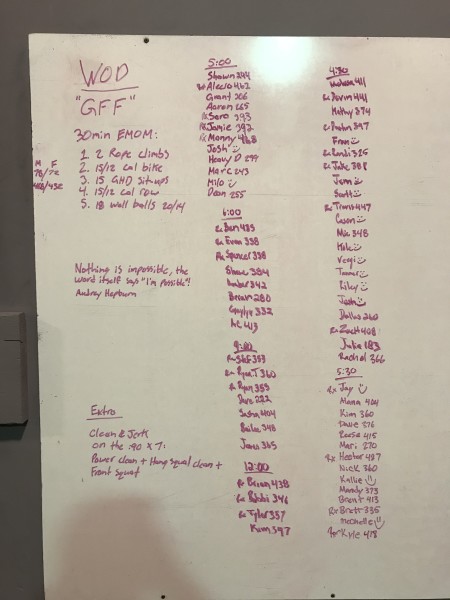 WOD
"GFF"
30min EMOM:
1. 2 Rope climbs
2. 15/12 cal bike
3. 15 GHD situps
4. 15/12 cal row
5. 18 wall balls 20/14
M F
Nothing is impossible, the
word itself says "I'm possible"!
Audrey Hepburn
Extra
Clean & Jerk
on the :90 x 7:
Power clean + Hang squat clean +
Front squat
5:00
Shawn 244
Alecio 462
Grant 306
Aaron 265
Rx Saro 393
Rx Jamie 392
Rx Manny 468
Josh
Heavy D 299
Marc 243
Milo
Dean 255
6:00
Rx Ben 435
Rx Evan 338
Rx Spencer 338
Shane 384
Amber 342
Brian 280
332
413
9:00
353
Rx Ryan T 360
Rx Ryan 355
Dave 222
Sasha 404
Bailee 348
James 365
12:00
Rx Brian 438
Rx 346
Rx Tyler 357
Kam 347
4:30
411
Rx Devin 441
Kathy 374
397
Fran
Rx 325
Rx Jake 388
Jenn
Scott
Rx Travis 447
Cason
Mic 348
Kole
Vergi
Tanner
Riley
Josh
Dallas 260
Rx Zach 408
Juka 183
Rachel 366
5:30
Rx Jay
Mana 404
Kim 360
Dave 376
Reese 415
Mari 270
Rx Hector 487
Nick 360
Kallie
Mandy 373
Brent 413
Rx Brett 335
Michelle
Rx Kyle 478